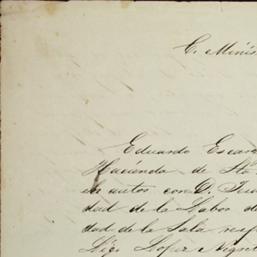 C. Minis
Eduardo Escan
Hacienda de Sta
en autos con D. Jua
dad de la Labor d
dad de la Sala resp
Lic. Lopez Negret